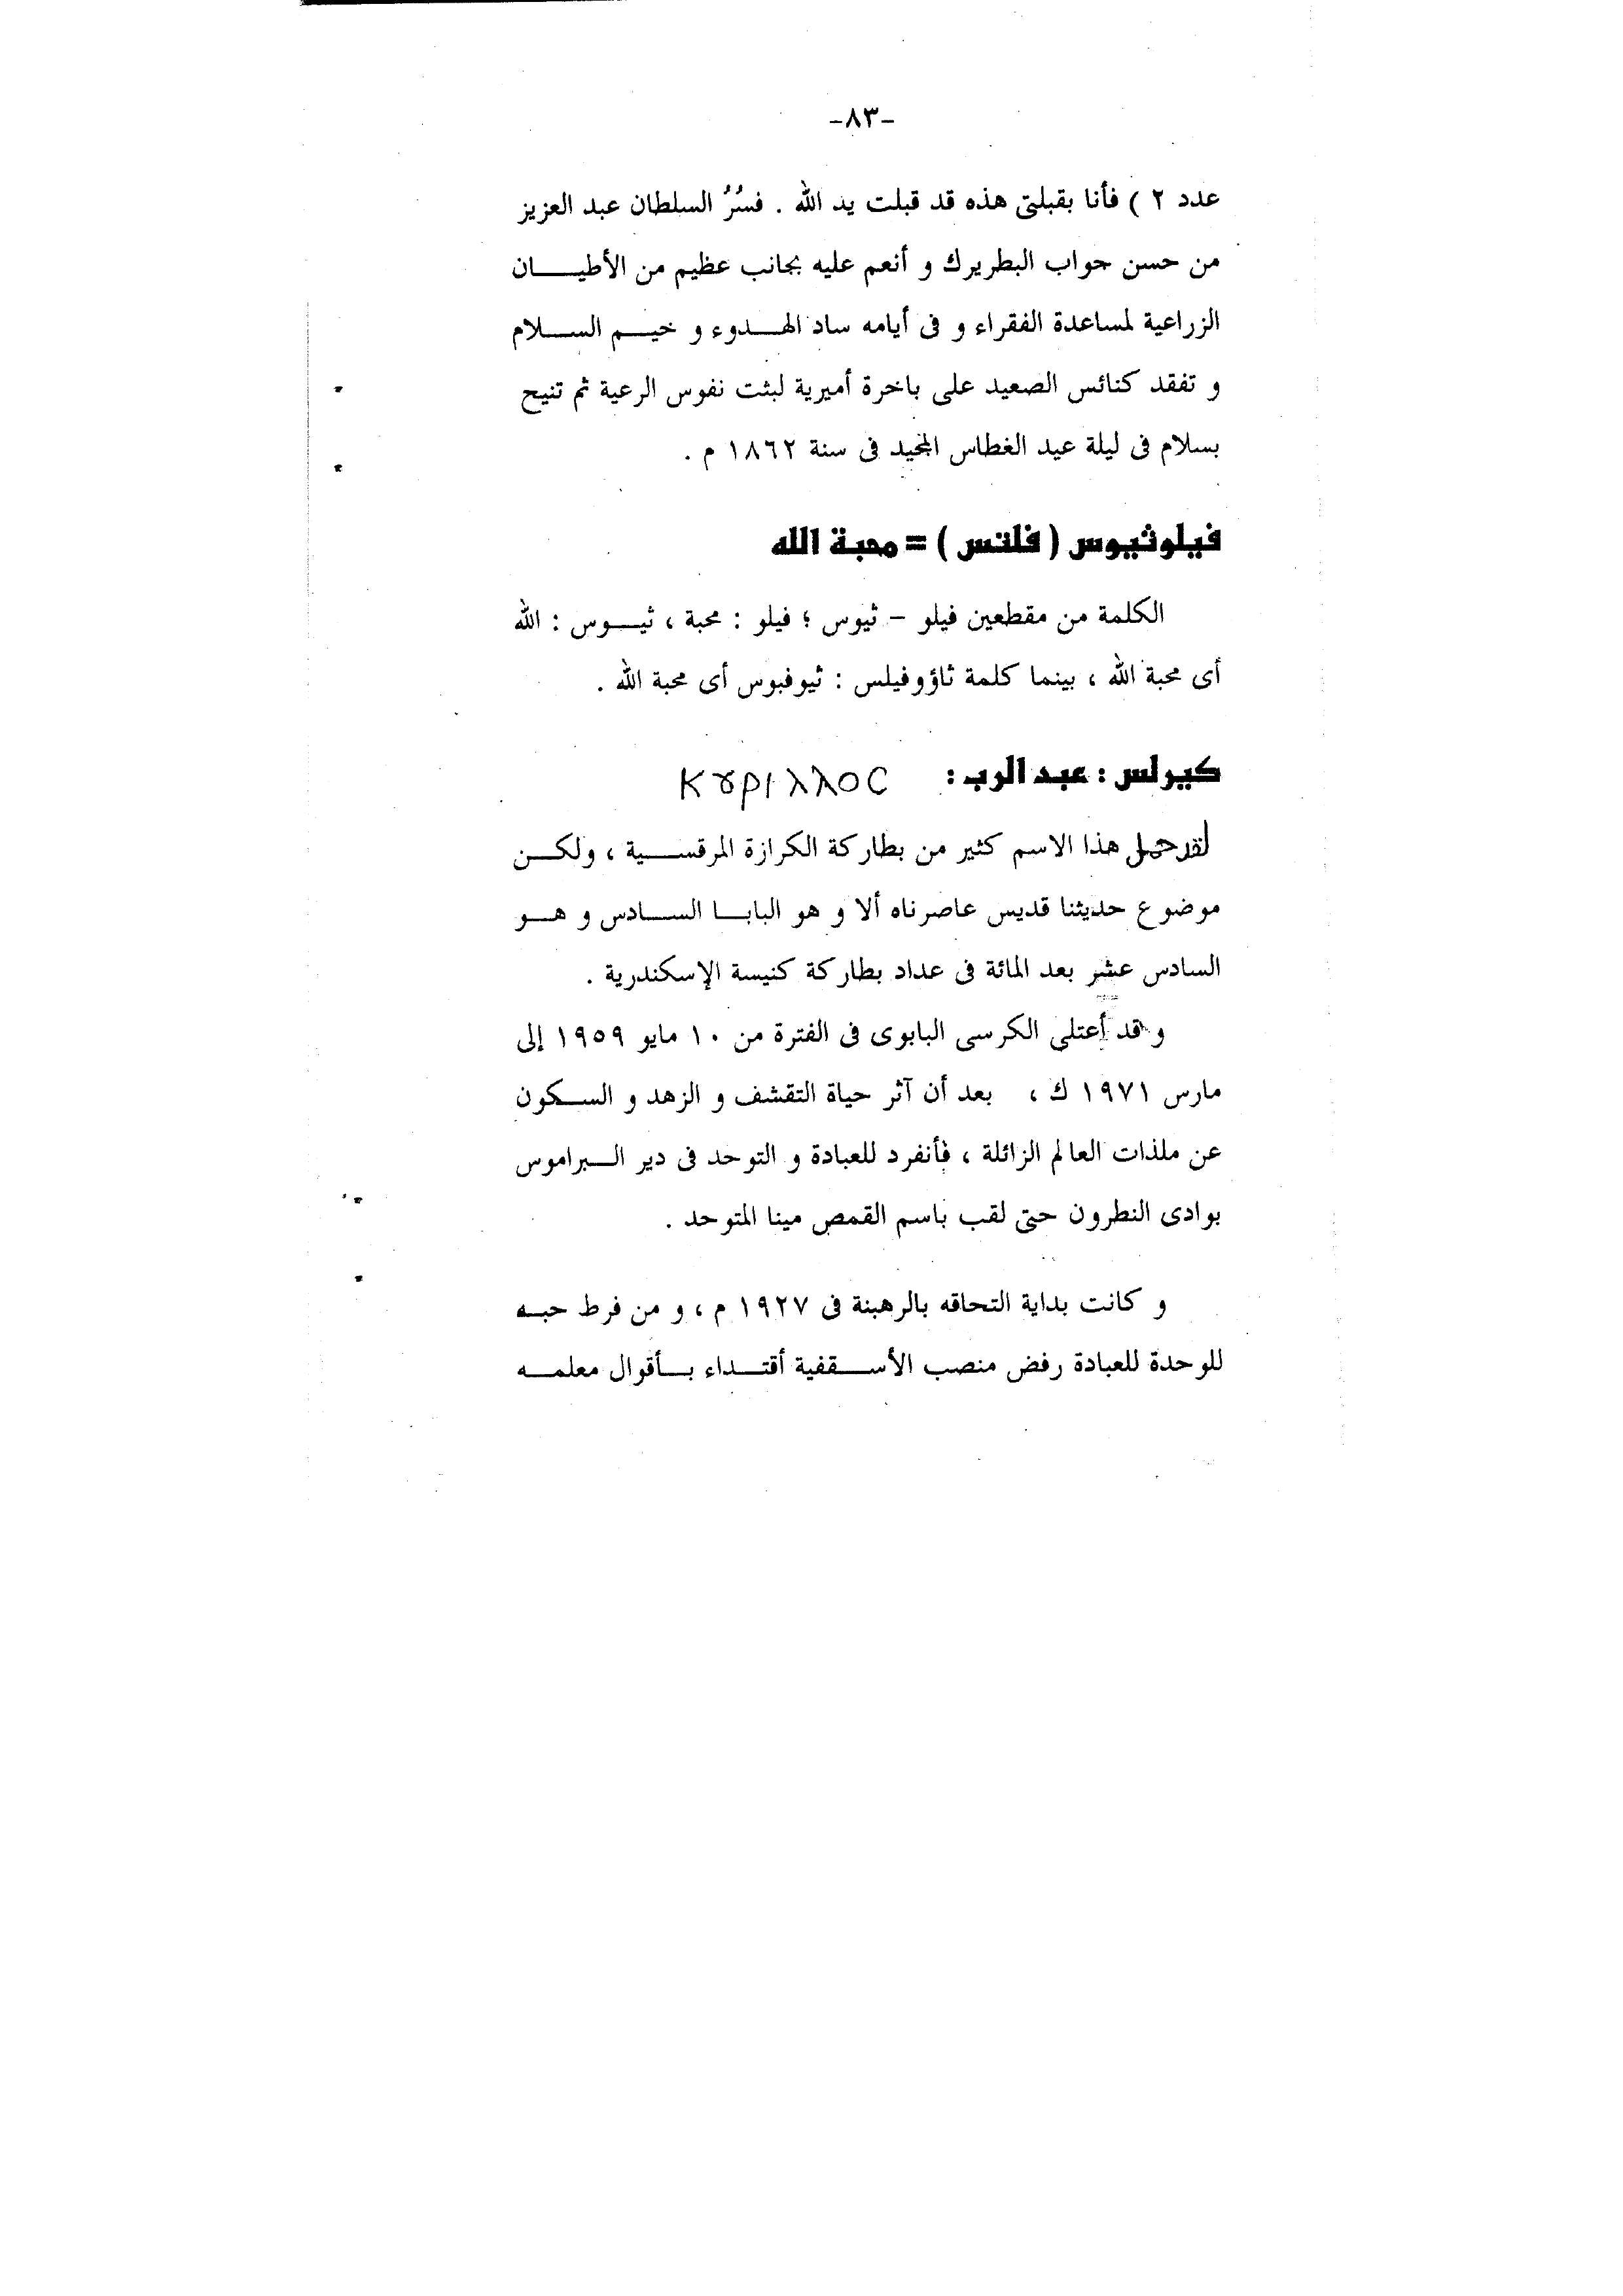 -٨٣-
عدد ٢ ) فأنا بقبلتى هذه قد قبلت يد الله . فسُرُ السلطان عبد العزيز
من حسن جواب البطريرك و أنعم عليه بجانب عظيم من الأطيــــان
الزراعية لمساعدة الفقراء و فى أيامه ساد الهـــدوء و خيـــم الســـلام
و تفقد كنائس الصعيد على باخرة أميرية لبثت نفوس الرعية ثم تنيح
بسلام فى ليلة عيد الغطاس المجيد فى سنة ١٨٦٢ م .
فيلوثيوس ( فلتس ) = محبة الله
الكلمة من مقطعين فيلو – ثيوس ؛ فيلو : محبة ، ثيـــوس : الله
أى محبة الله ، بينما كلمة ثاؤوفيلس : ثيوفبوس أى محبة الله .
كيرلس : عبد الرب : Κυριλλος
لقد حمل هذا الاسم كثير من بطاركة الكرازة المرقســـية ، ولكـــن
موضوع حديثنا قديس عاصرناه ألا و هو البابـــا الســـادس و هـــو
السادس عشر بعد المائة فى عداد بطاركة كنيسة الإسكندرية .
و قد أعتلى الكرسى البابوى فى الفترة من ١٠ مايو ١٩٥٩ إلى
مارس ١٩٧١ ك ، بعد أن آثر حياة التقشف و الزهد و الســكون
عن ملذات العالم الزائلة ، فأنفرد للعبادة و التوحد فى دير الـــبراموس
بوادى النطرون حتى لقب باسم القمص مينا المتوحد .
و كانت بداية التحاقه بالرهبنة فى ١٩٢٧ م ، و من فرط حبـــه
للوحدة للعبادة رفض منصب الأســـقفية أقتـــداء بـــأقوال معلمـــه